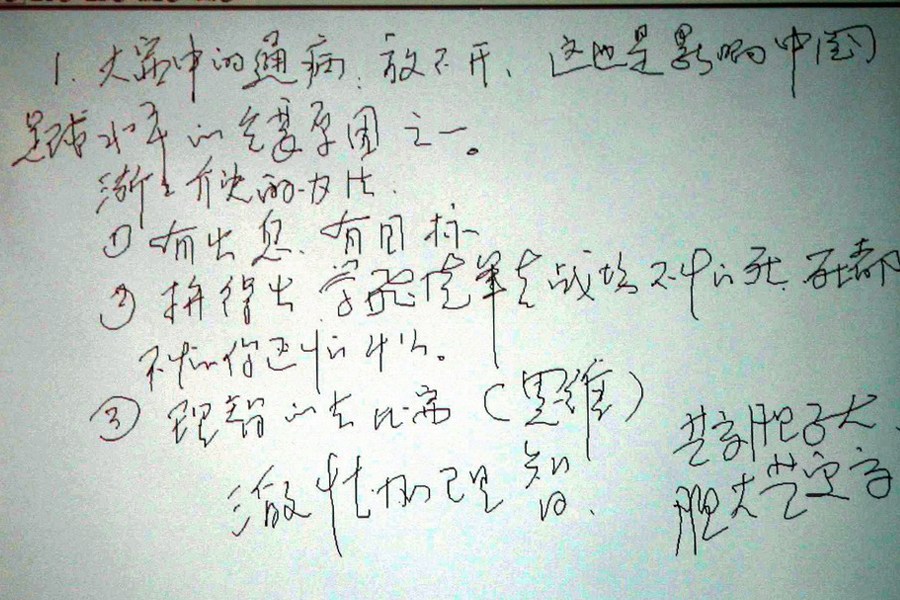 1. 大赛中的通病:放不开、这也是影响中国
足球水平的重要原因之一。
渐々介决的方法:
① 有出息、有目标
② 拼得出 学飞虎军去战场不怕死,死都
不怕你还怕什么。
③ 理智的去比赛(思维)
激性加理智.
艺高胆子大、
胆大艺更高